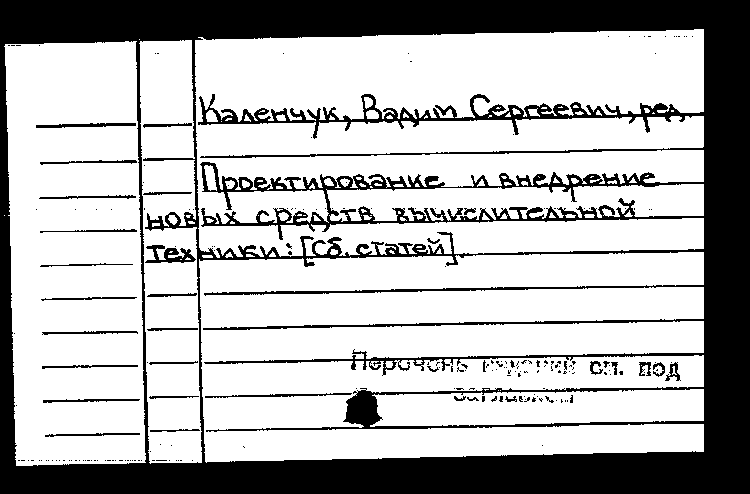 Каленчук, Вадим Сергеевич, ред.
Проектирование и внедрение
новых средств вычислительной
техники: [Сб. статей].
Перечень изданий см. под
заглавием